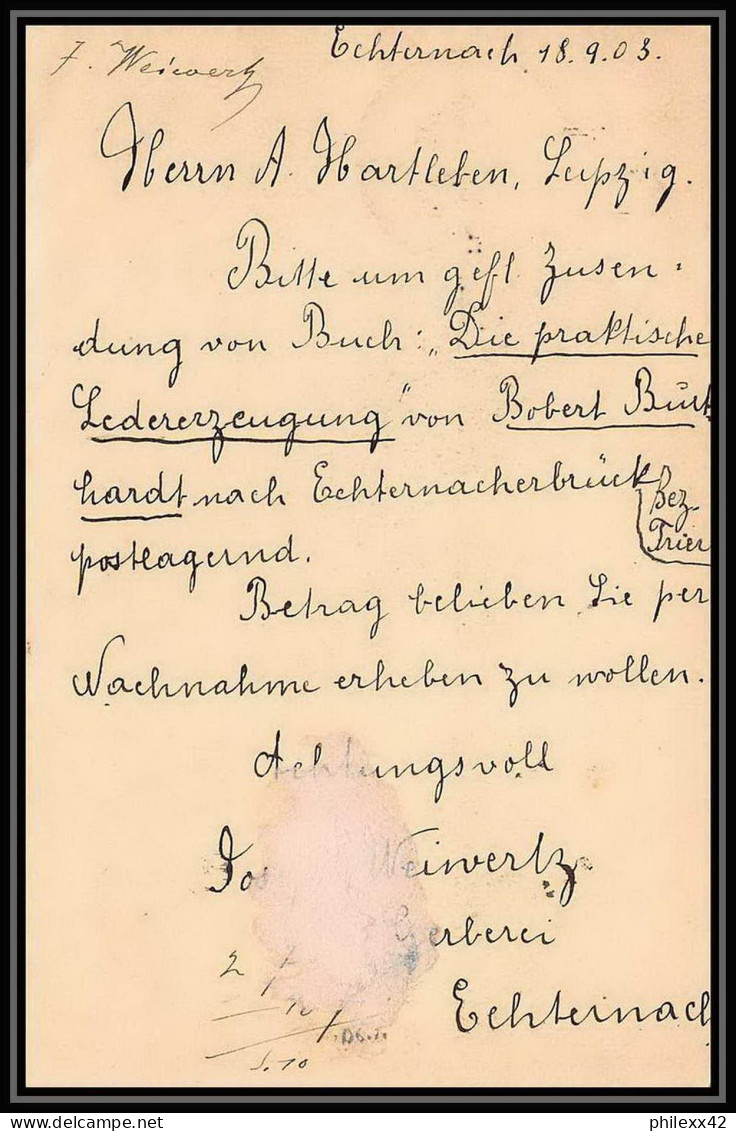 J. Weiwertz
Echternach 18.9.03.
Herrn A. Hartleben, Leipzig.
Bitte um gefl. Zusen-
dung von Buch: „Die praktische
Ledererzeugung" von Bobert Burk
hardt nach Echternacherbrück
Bez.
Trier
postlagernd.
Betrag belieben Sie per
Nachnahme erheben zu wollen.
Achtungsvoll
Weiwertz
Gerberei
Echternach
2
5.10
philexx42